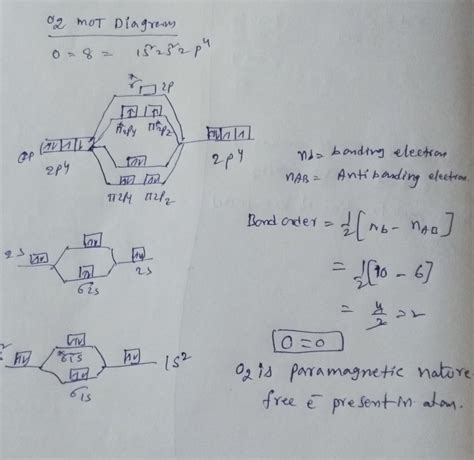 O2 MOT Diagram
O = 8 = 1S² 2S² 2p⁴
σ* 2p
π*2py π*2pz
2p
2p⁴
2p⁴
π2py π2pz
nb = bonding electron
nAB = Antibonding electron
Bond order = 1/2 [nb - nAB]
= 1/2 [10 - 6]
= 4/2 = 2
2S
2S
σ2s
O=O
σ*1s
1S²
σ1s
O2 is paramagnetic nature
free e⁻ present in atom.